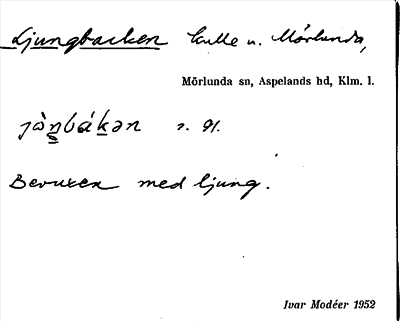 Ljungbacken kulle n. Mörlunda,
Mörlunda sn, Aspelands hd, Klm. l.
jàn̠bák̠ən
Bevuxen med ljung.
Ivar Modéer 1952